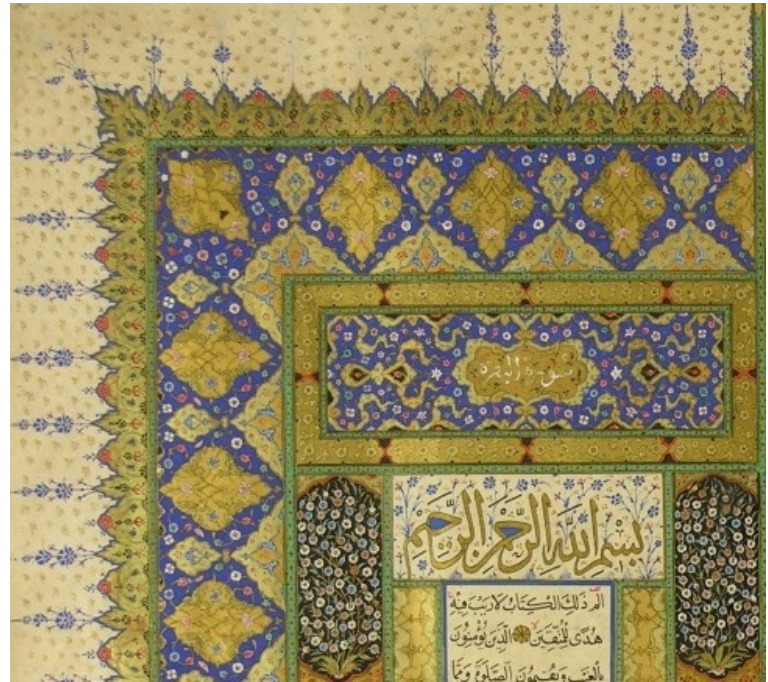 سورة البقرة
بِسْمِ اللَّهِ الرَّحْمَنِ الرَّحِيمِ
الم ذَلِكَ الْكِتَابُ لَا رَيْبَ فِيهِ
هُدًى لِلْمُتَّقِينَ الَّذِينَ يُؤْمِنُونَ
بِالْغَيْبِ وَيُقِيمُونَ الصَّلَوةَ وَمِمَّا